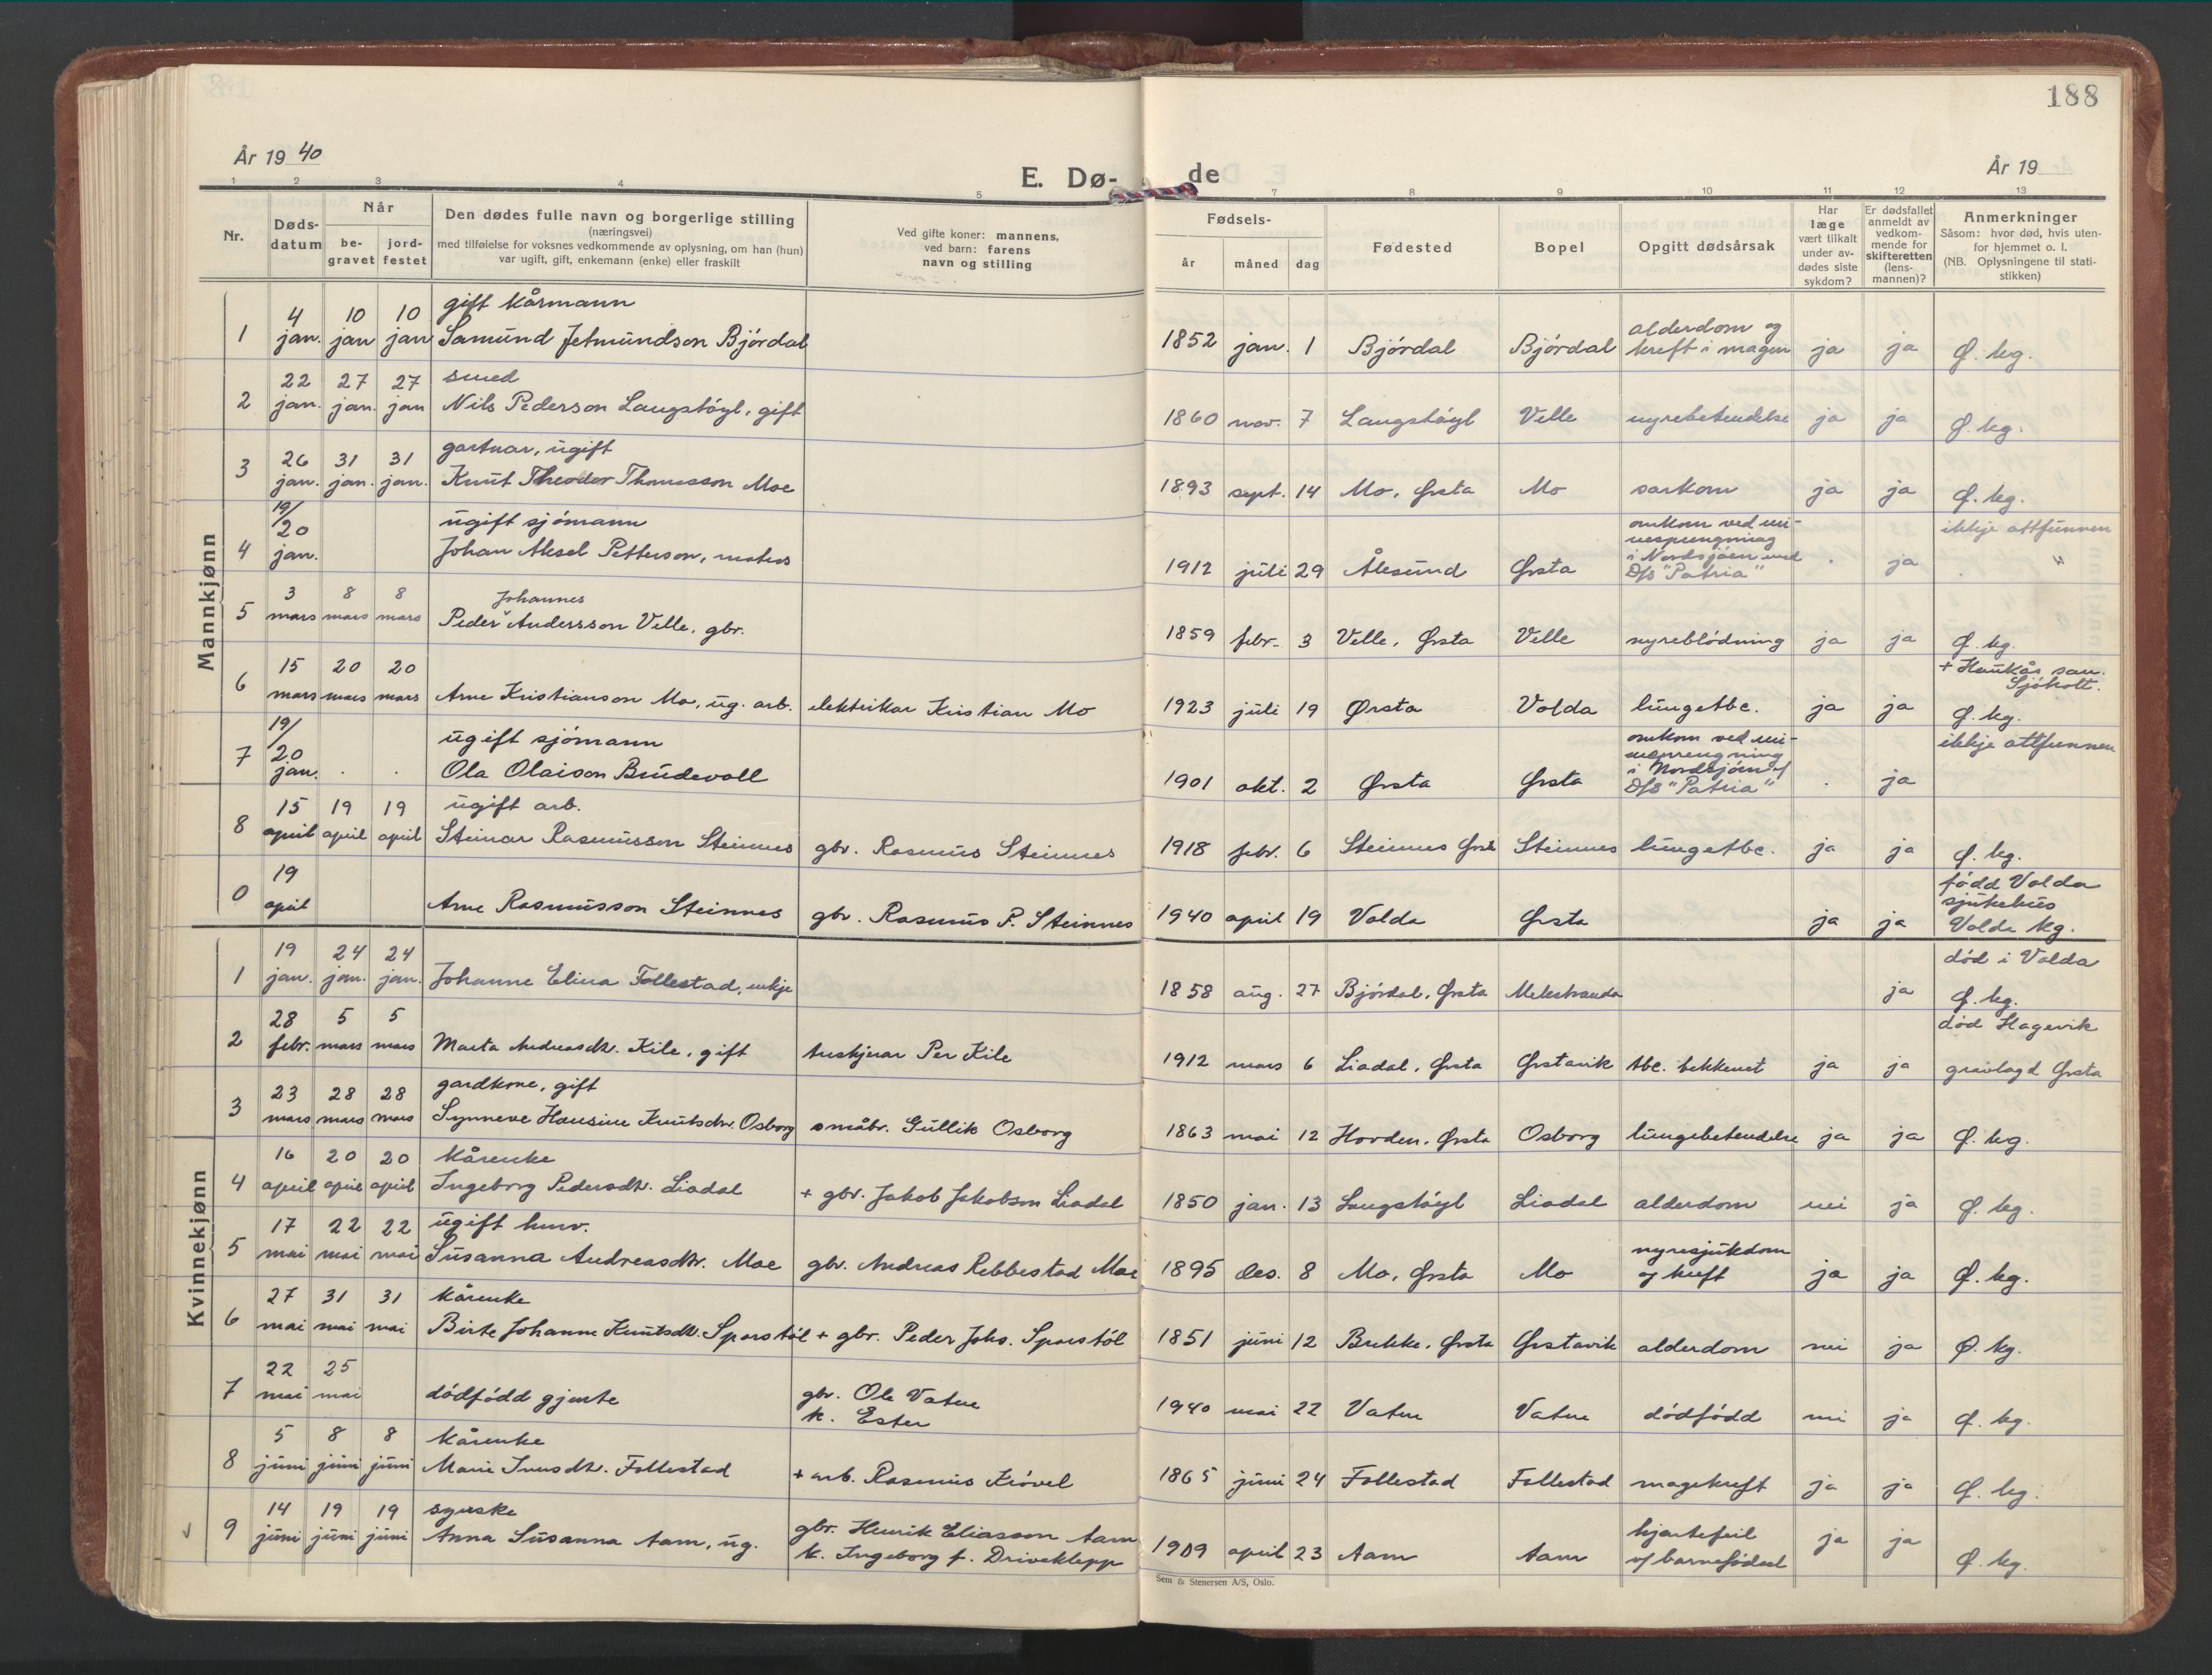 188
År 1940
E. Dø-
de
År 19
1 2 3 4 5 7 8 9 10 11 12 13
Nr.
Døds-
datum
Når
be-
gravet
jord-
festet
Den dødes fulle navn og borgerlige stilling
(næringsvei)
med tilføielse for voksnes vedkommende av oplysning, om han (hun)
var ugift, gift, enkemann (enke) eller fraskilt
Ved gifte koner: mannens,
ved barn: farens
navn og stilling
Fødsels-
år måned dag
Fødested
Bopel
Opgitt dødsårsak
Har
læge
vært tilkalt
under av-
dødes siste
sykdom?
Er dødsfallet
anmeldt av
vedkom-
mende for
skifteretten
(lens-
mannen)?
Anmerkninger
Såsom: hvor død, hvis uten-
for hjemmet o. l.
(NB. Oplysningene til stati-
stikken)
Mannkjønn
gift kårmann
1 4 jan. 10 jan 10 jan Samund Jetmundson Bjórdal 1852 jan. 1 Bjórdal Bjórdal alderdom og
kreft i magen ja ja Ø. kg.
smed
2 22 jan. 27 jan. 27 jan Nils Pederson Langstóyl, gift 1860 nov. 7 Langstóyl Velle nyrebetendelse ja ja Ø. kg.
gartnar, ugift
3 26 jan. 31 jan. 31 jan. Knut Theodor Thomasson Moe 1893 sept. 14 Mo, Ørsta Mo sarkom ja ja Ø. kg.
ugift sjómann
4 19/20 jan. Johan Aksel Petterson, 1912 juli 29 Ålesund Ørsta omkom ved mi-
nesprengning
i Nordsjóen med
D/S "Patria" . ja . ikkje attfunnen "
Johannes
5 3 mars 8 mars 8 mars Peder Andersson Velle, gbr. 1859 febr. 3 Velle, Ørsta Velle nyreblódning ja ja Ø. kg.
6 15 mars 20 mars 20 mars Arne Kristianson Mo, ug. arb. elektrikar Kristian Mo 1923 juli 19 Ørsta Volda lungetbc. ja ja + Haukås san.
Sjóholt.
Ø. kg.
ugift sjómann
7 19/20 jan. . . Ola Olaison Brudevoll 1901 okt. 2 Ørsta Ørsta omkom ved mi-
nesprengning
i Nordsjóen
D/S "Patria" . ja ikkje attfunnen
ugift arb.
8 15 april 19 april 19 april Steinar Rasmusson Steinnes gbr. Rasmus Steinnes 1918 febr. 6 Steinnes Ørsta Steinnes lungetbc. ja ja Ø. kg.
0 19 april Arne Rasmusson Steinnes gbr. Rasmus P. Steinnes 1940 april 19 Volda Ørsta ja ja fódd Volda
sjukehus
Volda kg.
Kvinnekjønn
1 19 jan. 24 jan. 24 jan. Johanne Elina Follestad, enkje 1858 aug. 27 Bjórdal, Ørsta Melestranda ja død i Volda
Ø. kg.
2 28 febr. 5 mars 5 mars Marta Andreasdtr. Kile, gift Per Kile 1912 mars 6 Liadal, Ørsta Ørstavik tbc. bekkenet ja ja død Hagevik
gravlagd Ørsta
gardkone, gift
3 23 mars 28 mars 28 mars Synneve Hansine Knutsdtr. Osborg småbr. Gullik Osborg 1863 mai 12 Hovden, Ørsta Osborg lungebetendelse ja ja Ø. kg.
kårenke
4 16 april 20 april 20 april Ingeborg Pedersdtr. Liadal + gbr. Jakob Jakobson Liadal 1850 jan. 13 Langstóyl Liadal alderdom nei ja Ø. kg.
ugift
5 17 mai 22 mai 22 mai Susanna Andreasdtr. Moe gbr. Andreas Rebbestad Moe 1895 des. 8 Mo, Ørsta Mo nyresjukdom
og kreft ja ja Ø. kg.
kårenke
6 27 mai 31 mai 31 mai Birte Johanne Knutsdtr. Sporstól + gbr. Peder Johs. Sporstól 1851 juni 12 Brekke, Ørsta Ørstavik alderdom nei ja Ø. kg.
7 22 mai 25 mai dódfódd gjente gbr. Ole Vatne
k. Ester 1940 mai 22 Vatne Vatne dódfódd nei ja Ø. kg.
kårenke
8 5 juni 8 juni 8 juni Marie Iversdtr. Follestad + arb. Rasmus Króvel 1865 juni 24 Follestad Follestad magekreft ja ja Ø. kg.
syerske
9 14 juni 19 juni 19 juni Anna Susanna Aam, ug. gbr. Henrik Eliasson Aam
k. Ingeborg f. Driveklepp 1909 april 23 Aam Aam hjertefeil
v/ barnefódsel ja ja Ø. kg.
Sem & Stenersen A/S, Oslo.